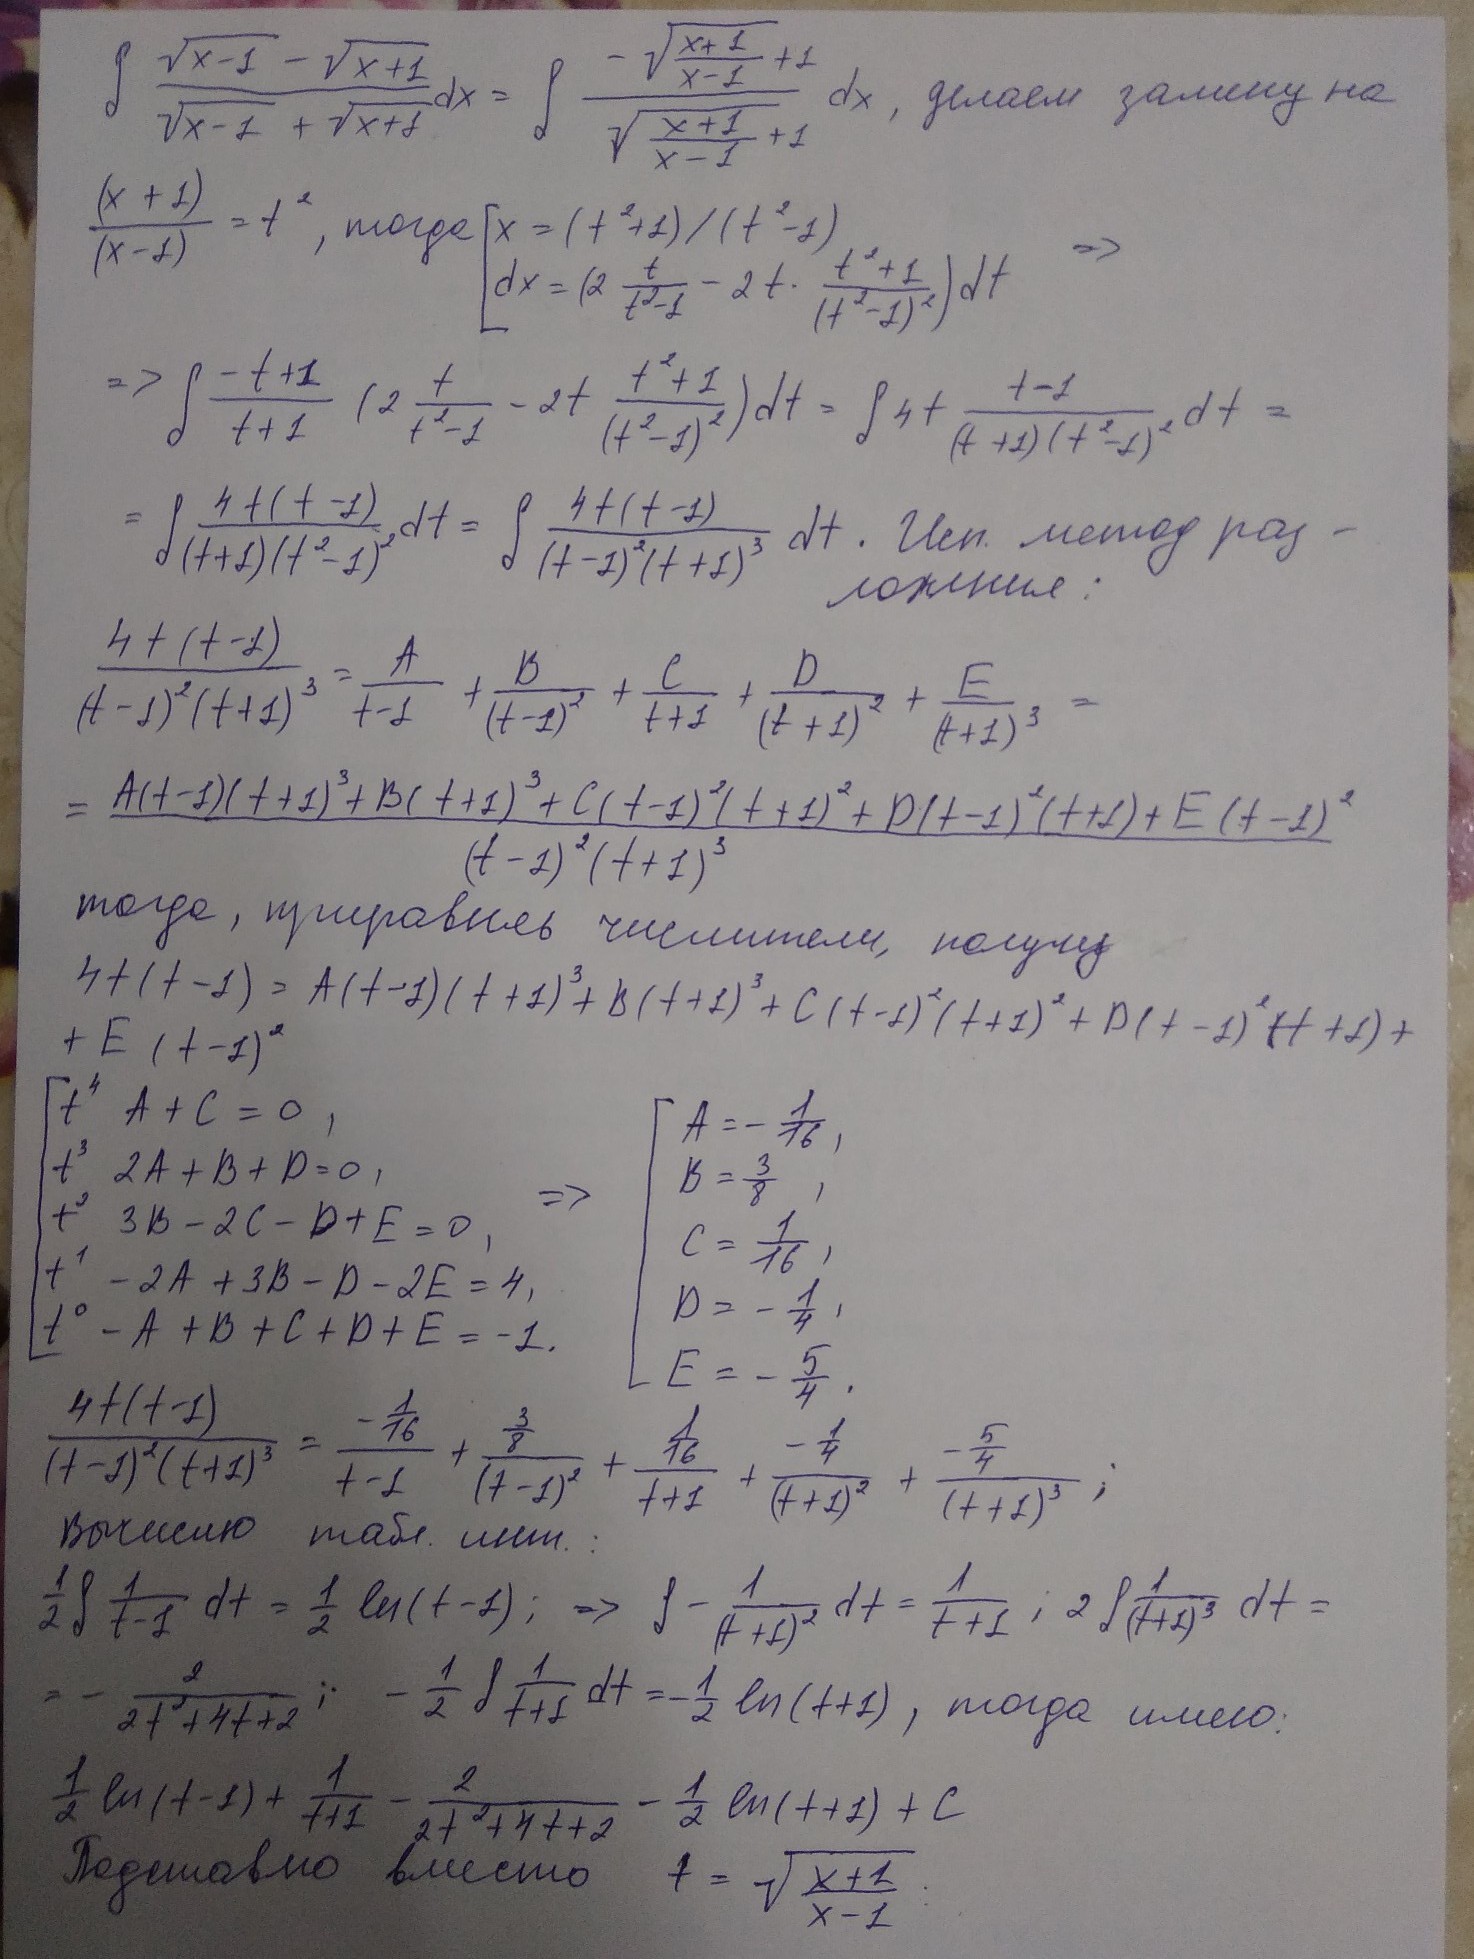 ∫ (√(x-1) - √(x+1))/(√(x-1) + √(x+1)) dx = ∫ (-√((x+1)/(x-1)) + 1)/(√((x+1)/(x-1)) + 1) dx, делаем замену на
(x+1)/(x-1) = t², тогда [x = (t²+1)/(t²-1)
dx = (2 t/(t²-1) - 2t · (t²+1)/(t²-1)²) dt =>
=> ∫ (-t+1)/(t+1) (2 t/(t²-1) - 2t (t²+1)/(t²-1)²) dt = ∫ 4t (t-1)/((t+1)(t²-1)²) dt =
= ∫ 4t(t-1)/((t+1)(t²-1)²) dt = ∫ 4t(t-1)/((t-1)²(t+1)³) dt. Исп. метод раз-
ложения:
4t(t-1)/((t-1)²(t+1)³) = A/(t-1) + B/(t-1)² + C/(t+1) + D/(t+1)² + E/(t+1)³ =
= (A(t-1)(t+1)³ + B(t+1)³ + C(t-1)²(t+1)² + D(t-1)²(t+1) + E(t-1)²)/((t-1)²(t+1)³)
тогда, приравняв числители, получу
4t(t-1) = A(t-1)(t+1)³ + B(t+1)³ + C(t-1)²(t+1)² + D(t-1)²(t+1) +
+ E(t-1)²
[t⁴ A + C = 0,
t³ 2A + B + D = 0,
t² 3B - 2C - D + E = 0,
t¹ - 2A + 3B - D - 2E = 4,
t⁰ - A + B + C + D + E = -1.
=>
[A = -1/16,
B = 3/8,
C = 1/16,
D = -1/4,
E = -5/4.
4t(t-1)/((t-1)²(t+1)³) = (-1/16)/(t-1) + (3/8)/(t-1)² + (1/16)/(t+1) + (-1/4)/(t+1)² + (-5/4)/(t+1)³;
Вычислю табл. инт.:
1/2 ∫ 1/(t-1) dt = 1/2 ln(t-1); => ∫ - 1/(t+1)² dt = 1/(t+1); 2 ∫ 1/(t+1)³ dt =
= - 2/(2t²+4t+2); - 1/2 ∫ 1/(t+1) dt = -1/2 ln(t+1), тогда имею:
1/2 ln(t-1) + 1/(t+1) - 2/(2t²+4t+2) - 1/2 ln(t+1) + C
Подставлю вместо t = √((x+1)/(x-1)):